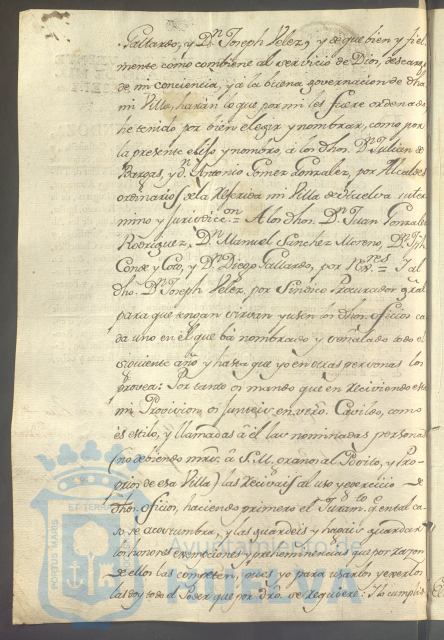 Gallardo, y Dn. Joseph Velez, y de que bien y fiel
mente, como combiene al servicio de Dios, descargo
de mi conciencia, y a la buena governacion de dha
mi Villa, harán lo que por mi les fuere ordenado
he tenido por bien elegir y nombrar, como por
la presente elijo, y nombro, á los dhos. Dn. Julian de
Bargas, y dn. Antonio Gomez Gonzalez, por Alcaldes
ordinarios de la referida mi Villa de Huelva su ter
mino y Jurisdiccon. = A los dhos. Dn. Juan Gonzalez
Rodriguez, Dn. Manuel Sanchez Moreno, Dn. Jph
Conde y Coto, y Dn. Diego Gallardo, por Rexres = Y al
dho. Dn. Joseph Velez, por Sindico Procurador gral
para que tengan sirvan y usen los dhos. oficios ca
da uno en el que bá nombrado y señalado todo el
siguiente año, y hasta que yo en otras personas los
provea: Por tanto os mando que en reciviendo esta
mi Provision, os junteis en vrô. Cavildo, como
es estilo, y llamadas á él las nominadas personas
(no debiendo mrs. á S.M. orâ no al Posito, y Pro
prios de esa Villa) las recivais al uso y exercicio de
dhos. oficios, haciendo primero el Juramto. q.e en tal ca
so se acostumbra, y las guardeis y hagais guardar
los honores exempciones y preheminencias que por razon
de ellos las competen, pues yo para usarlos y exercerlos
las doy todo el Poder que por dro. se requiere: Y lo cumplireis
PORTUS MARIS
ET TERRAE
Ayuntamiento de
HUELVA